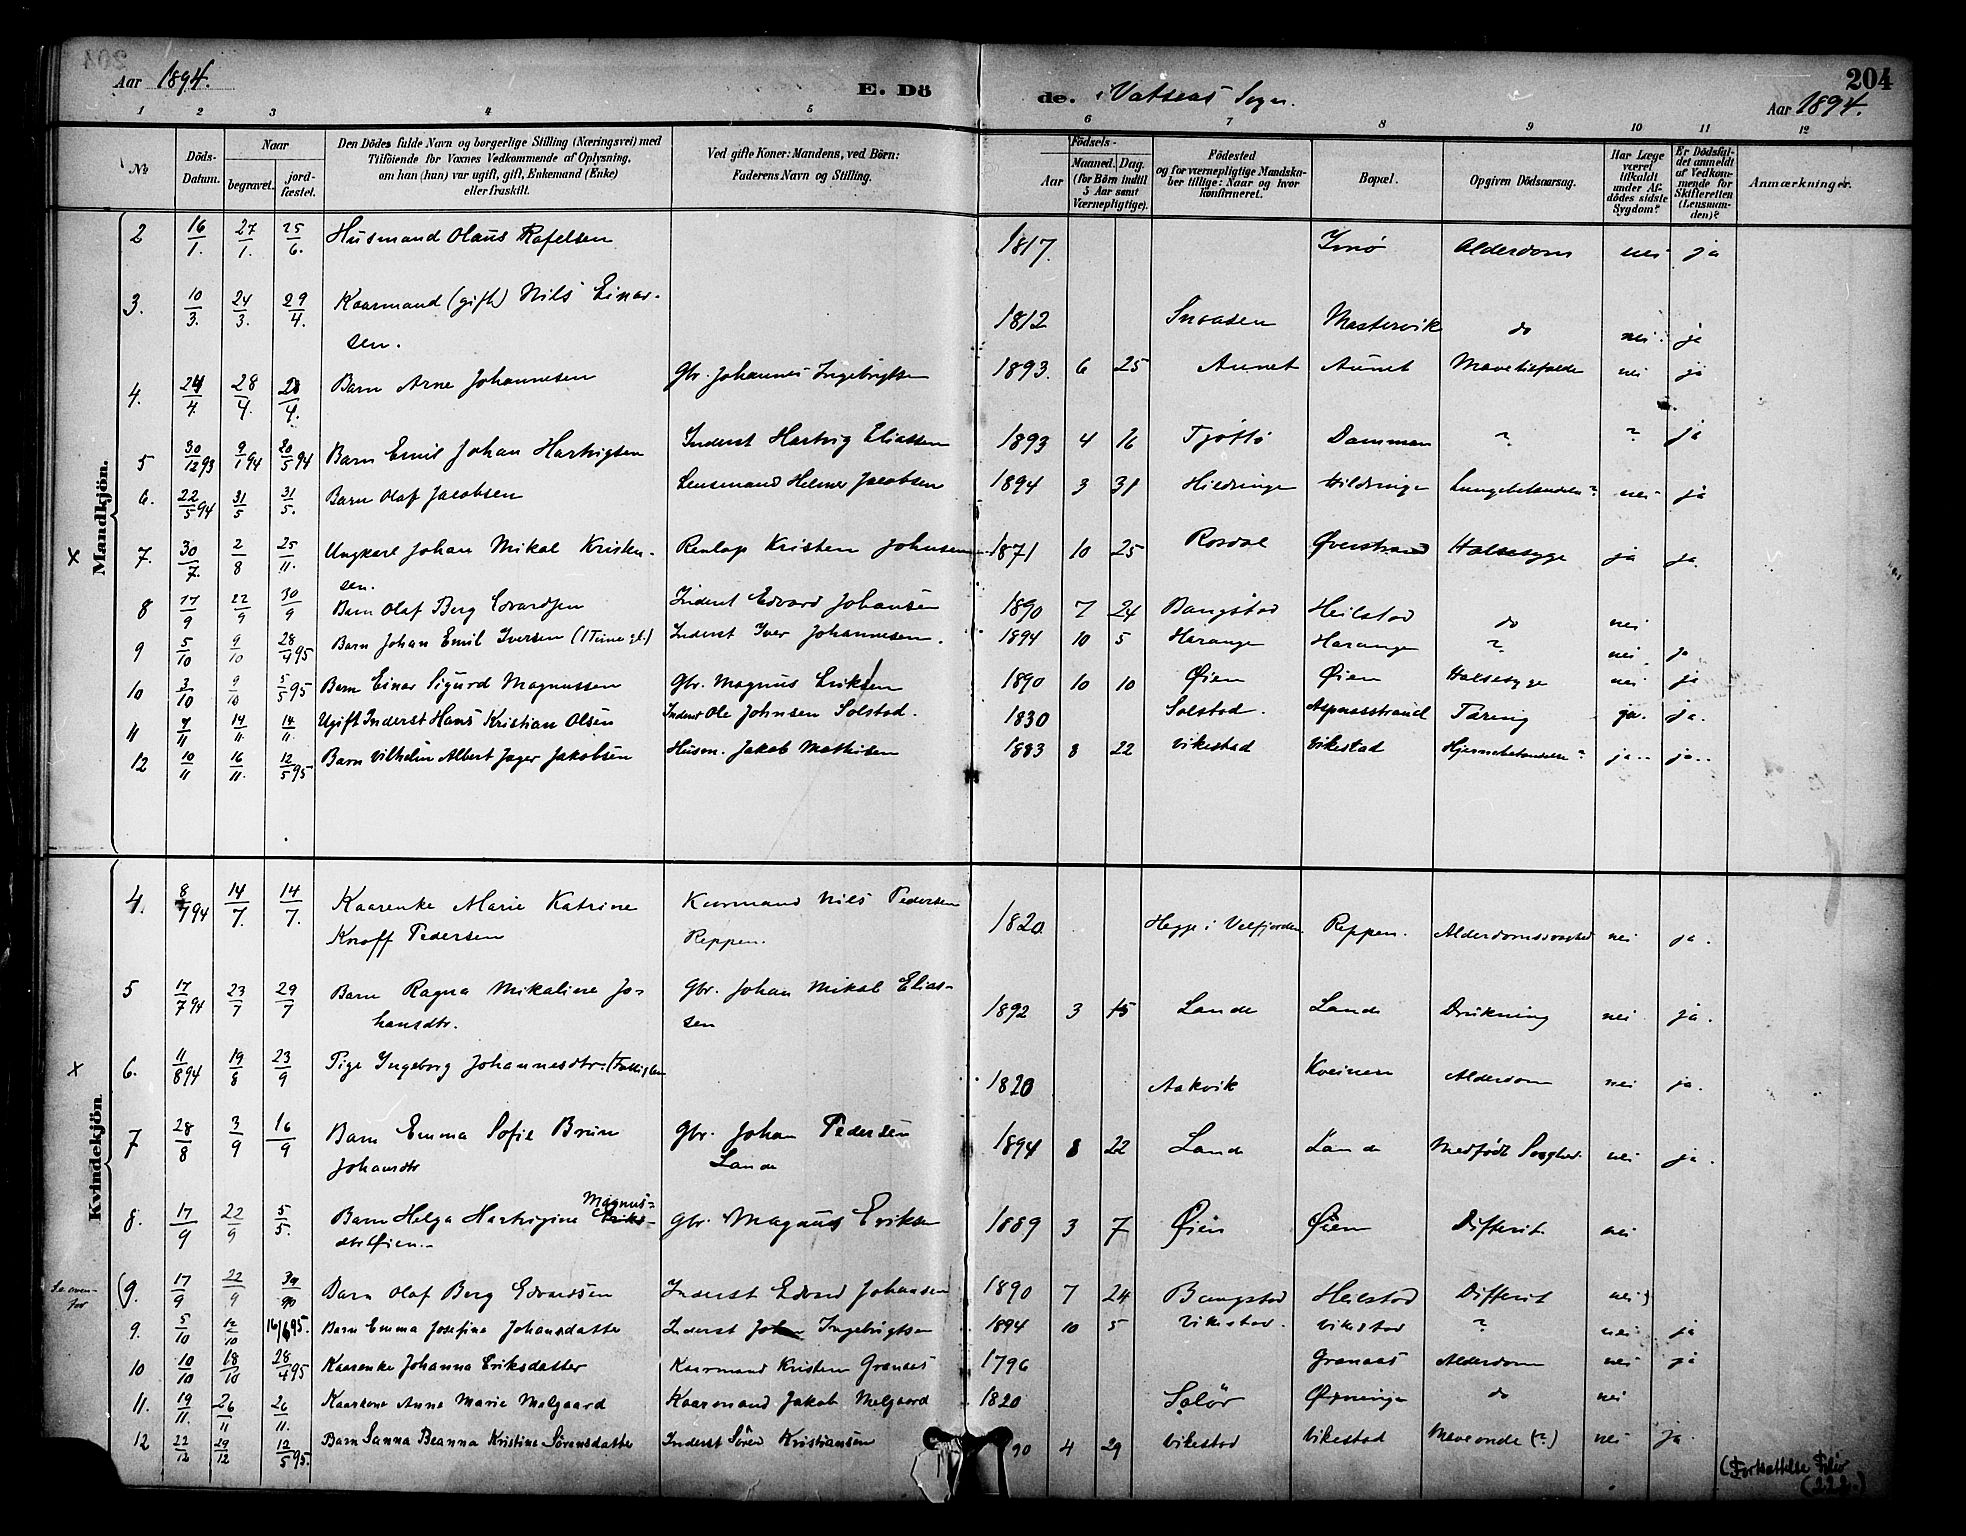 204
Aar 1894.
E. Döde. i Vatsens Sogn.
Aar 1894.
1 2 3 4 5 6 7 8 9 10 11 12
No
Döds-Datum.
Naar
begravet.
jord-fæstet.
Den Dödes fulde Navn og borgerlige Stilling (Næringsvei) med
Tilföiende for Voxnes Vedkommende af Oplysning,
om han (hun) var ugift, gift, Enkemand (Enke)
eller fraskilt.
Ved gifte Koner: Mandens, ved Börn:
Faderens Navn og Stilling.
Födsels-
Aar
Maaned. Dag.
(for Börn indtil
5 Aar samt
Værnepligtige).
Födested
og for værnepligtige Mandska-
ber tillige: Naar og hvor
konfirmeret.
Bopæl.
Opgiven Dödsaarsag.
Har Læge
været
tilkaldt
under Af-
dödes sidste
Sygdom?
Er Dödsfal-
det anmeldt
af Vedkom-
mende for
Skifteretten
(Lensman-
den)?
Anmærkninger.
Mandkjön.
2 16/1. 27/1. 25/6. Husmand Olaus Rafelsen 1817. Alderdom nei ja
3. 10/3. 24/3. 29/4. Kaarmand (gift) Nils Einar-
sen. 1812 Snaasen Mastervik do nei ja
4. 24/4. 28/4. 28/4. Barn Arne Johannesen Gbr. Johannes Ingebrigtsen 1893. 6 25 Aunet Aunet nei ja
5 30/12 93 9/1 94 20/5 94 Barn Emil Johan Hartvigsen Inderst Hartvig Eliassen 1893 4 16 Tjöttö Damman ? ? ja
6. 22/5 94 31/5 31/5. Barn Olaf Jacobsen Lensmand Helmer Jacobsen 1894 3 31 Hildringe Hildringe Lungebetændelse? nei ja
X 7. 30/7. 2/8 25/11. Ungkarl Johan Mikal Kristen-
sen. Kristen Johnsen 1871 10 25 Rosdal Øverstrand Halsesyge ja ja.
8 17/9 22/9 30/9 Barn Olaf Berg Edvardsen Inderst Edvard Johansen 1890 7 24 Bangstad Heilstad do nei
9 5/10 9/10 28/4 95 Barn Johan Emil Iversen (1 Time gl.) Inderst Iver Johannesen. 1894 10 5 Harange Harange ? nei ja
10 3/10 9/10 5/5 95 Barn Einar Sigurd Magnussen Gbr. Magnus Eriksen 1890 10 10 Øien Øien Halsesyge nei ja
11 7/11 14/11. 14/11. Ugift Inderst Hans Kristian Olsen Inderst Ole Johnsen Solstad. 1830 Solstad. Aspnesstrand Tæring ja. ja.
12 10/11 16/11. 12/5 95 Barn Vilhelm Albert Jager Jakobsen Husm. Jakob Mathisen 1883 8 22 Vikestad Vikestad Hjernebetændelse? ja.. ja..
Kvindekjön
4. 8/7 94 14/7. 14/7. Kaarenke Marie Katrine
Knoff Pedersen Kaarmand Nils Pedersen
Reppen. 1820. Hegge i Velfjorden Reppen. Alderdomssvaghed nei ja.
5 17/7 94 23/7 29/7 Barn Ragna Mikaline Jo-
hansdtr. Gbr. Johan Mikal Elias-
sen 1892 3 15 Lande Lande Drukning nei ja.
X 6. 11/8 94 19/8 23/9 Pige Ingeborg Johannesdtr. (Fattiglem 1820 Aakvik Kveinen Alderdom nei ja.
7 28/8 3/9 16/9 Barn Emma Sofie Brun
Johansdtr Gbr. Johan Pedersen
Lande 1894 8 22 Lande Lande Medfødt Svaghed. nei ja.
8. 17/9 22/9 5/5. Barn Helga Hartvigine Magnus-
dtr Øien.. Gbr. Magnus Eriksen 1889 3 7 Øien Øien Difterit. nei
Se oven-
for
(9. 17/9 22/9 30/9 Barn Olaf Berg Edvardsen Inderst Edvard Johansen 1890 7 24 Bangstad Heilstad Difterit nei)
9. 5/10 12/10 16/6 95. Barn Emma Josefina Johansdatter Inderst Johan Ingebrigtsen 1894 10 5 Vikestad. Vikestad ? nei ja
10 10/10 18/10 28/4 95 Kaarenke Johanna Eriksdatter Kaarmand Kristen Granaas 1796 Granaas Alderdom nei ja
11. 19/11. 26/11 26/11. Kaarkone Anne Marie Melgaard Kaarmand Jakob Melgaard 1820 Solör do nei
12 22/12 29/12 12/5 95. Barn Sanna Beanna Kristine Sörensdatter Inderst Sören Kristiansen 90 4 29 Vikestad Vikestad Maveonde (?) nei ja.
(Fortsættelse Folio
(22.)